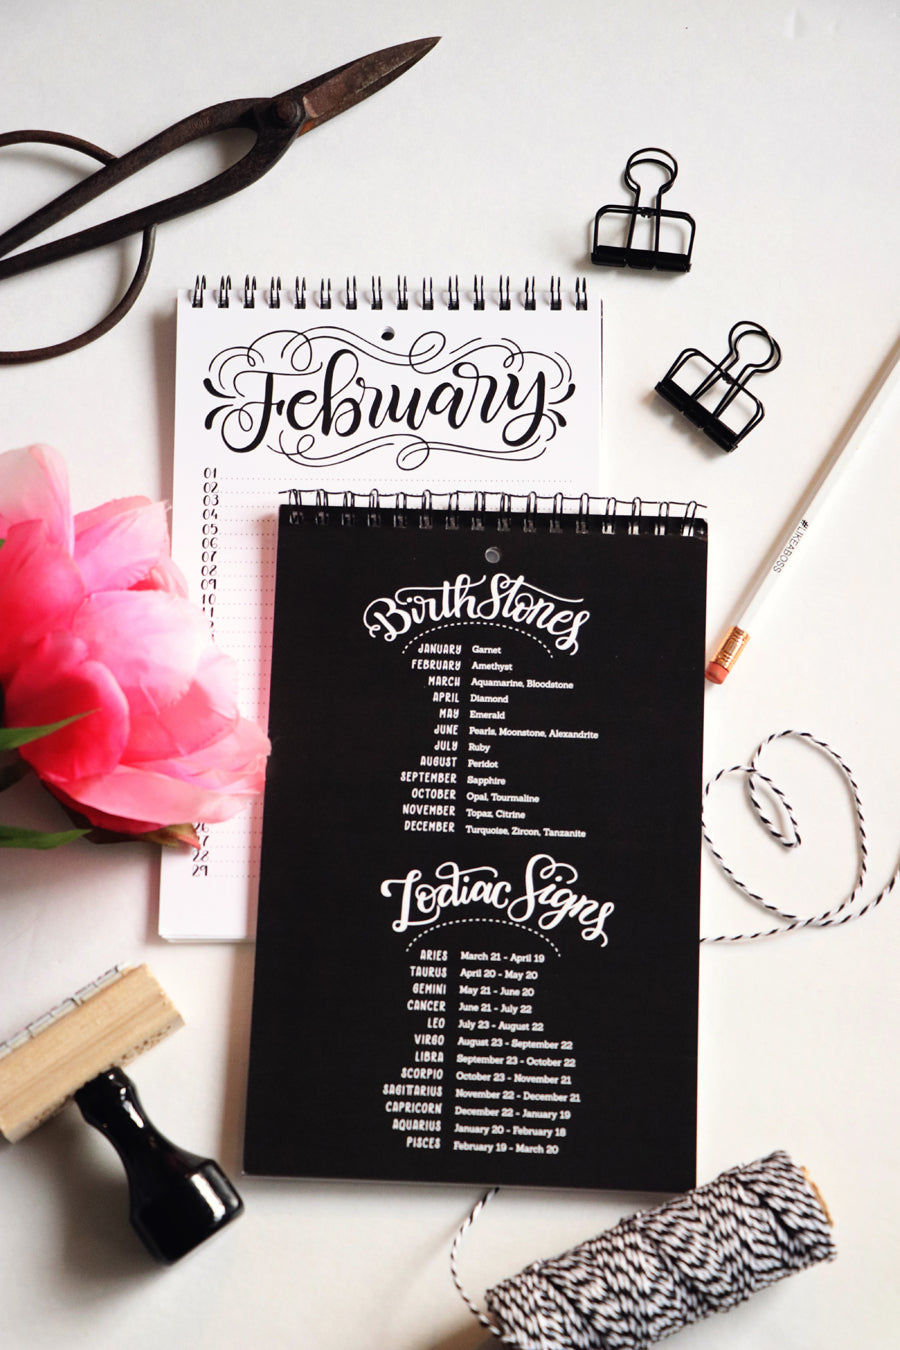 February
01
02
03
04
05
06
07
08
09
10
11
26
27
28
29
#LIKEABOSS
Birth Stones
JANUARY Garnet
FEBRUARY Amethyst
MARCH Aquamarine, Bloodstone
APRIL Diamond
MAY Emerald
JUNE Pearls, Moonstone, Alexandrite
JULY Ruby
AUGUST Peridot
SEPTEMBER Sapphire
OCTOBER Opal, Tourmaline
NOVEMBER Topaz, Citrine
DECEMBER Turquoise, Zircon, Tanzanite
Zodiac Signs
ARIES March 21 - April 19
TAURUS April 20 - May 20
GEMINI May 21 - June 20
CANCER June 21 - July 22
LEO July 23 - August 22
VIRGO August 23 - September 22
LIBRA September 23 - October 22
SCORPIO October 23 - November 21
SAGITTARIUS November 22 - December 21
CAPRICORN December 22 - January 19
AQUARIUS January 20 - February 18
PISCES February 19 - March 20